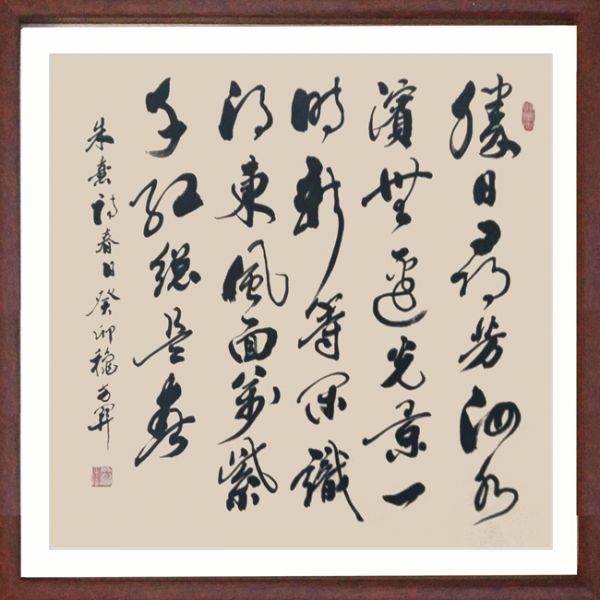 勝日尋芳泗水
濱無邊光景一
時新等閑識
得東風面萬紫
千紅總是春
朱熹詩春日癸卯穐方